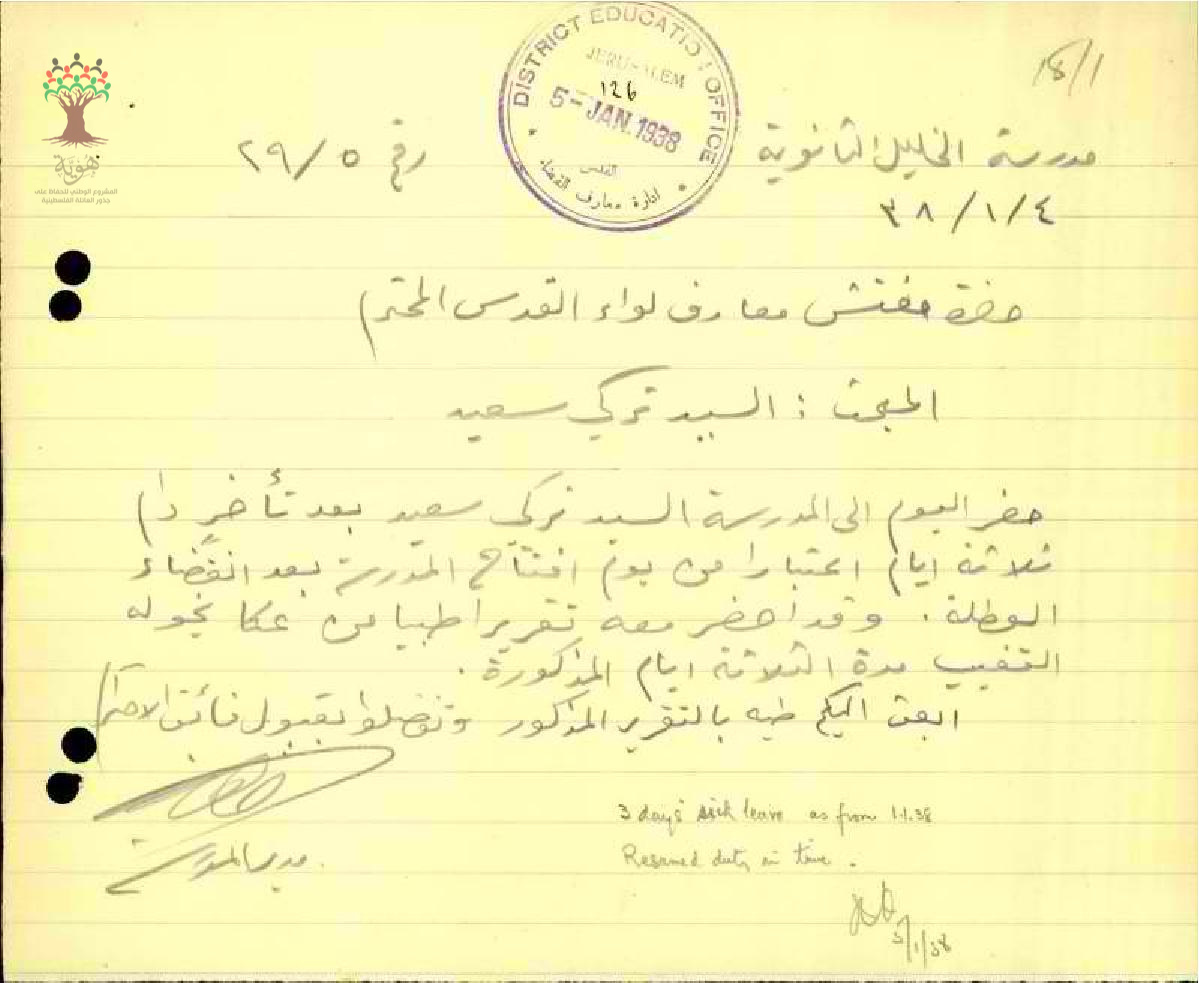 18/1
DISTRICT EDUCATION OFFICE
JERUSALEM
126
5-JAN.1938
القدس
ادارة معارف القضاء
هوية
المشروع الوطني للحفاظ على
جذور العائلة الفلسطينية
مدرسة الخليل الثانوية
رقم ٢٩/٥
٣٨/١/٤
حضرة مفتش معارف لواء القدس المحترم
المبحث : السيد تركي سعيد
حضر اليوم الى المدرسة السيد تركي سعيد بعد تأخر دام
ثلاثة ايام اعتبارا من يوم افتتاح المدرسة بعد انقضاء
العطلة . وقد احضر معه تقريرا طبيا من عكا يخوله
التغيب مدة الثلاثة ايام المذكورة .
ابعث اليكم طيه بالتقرير المذكور وتفضلوا بقبول فائق الاحترام
مدير المدرسة
3 days' sick leave as from 1.1.38
Resumed duty in time .
5/1/38